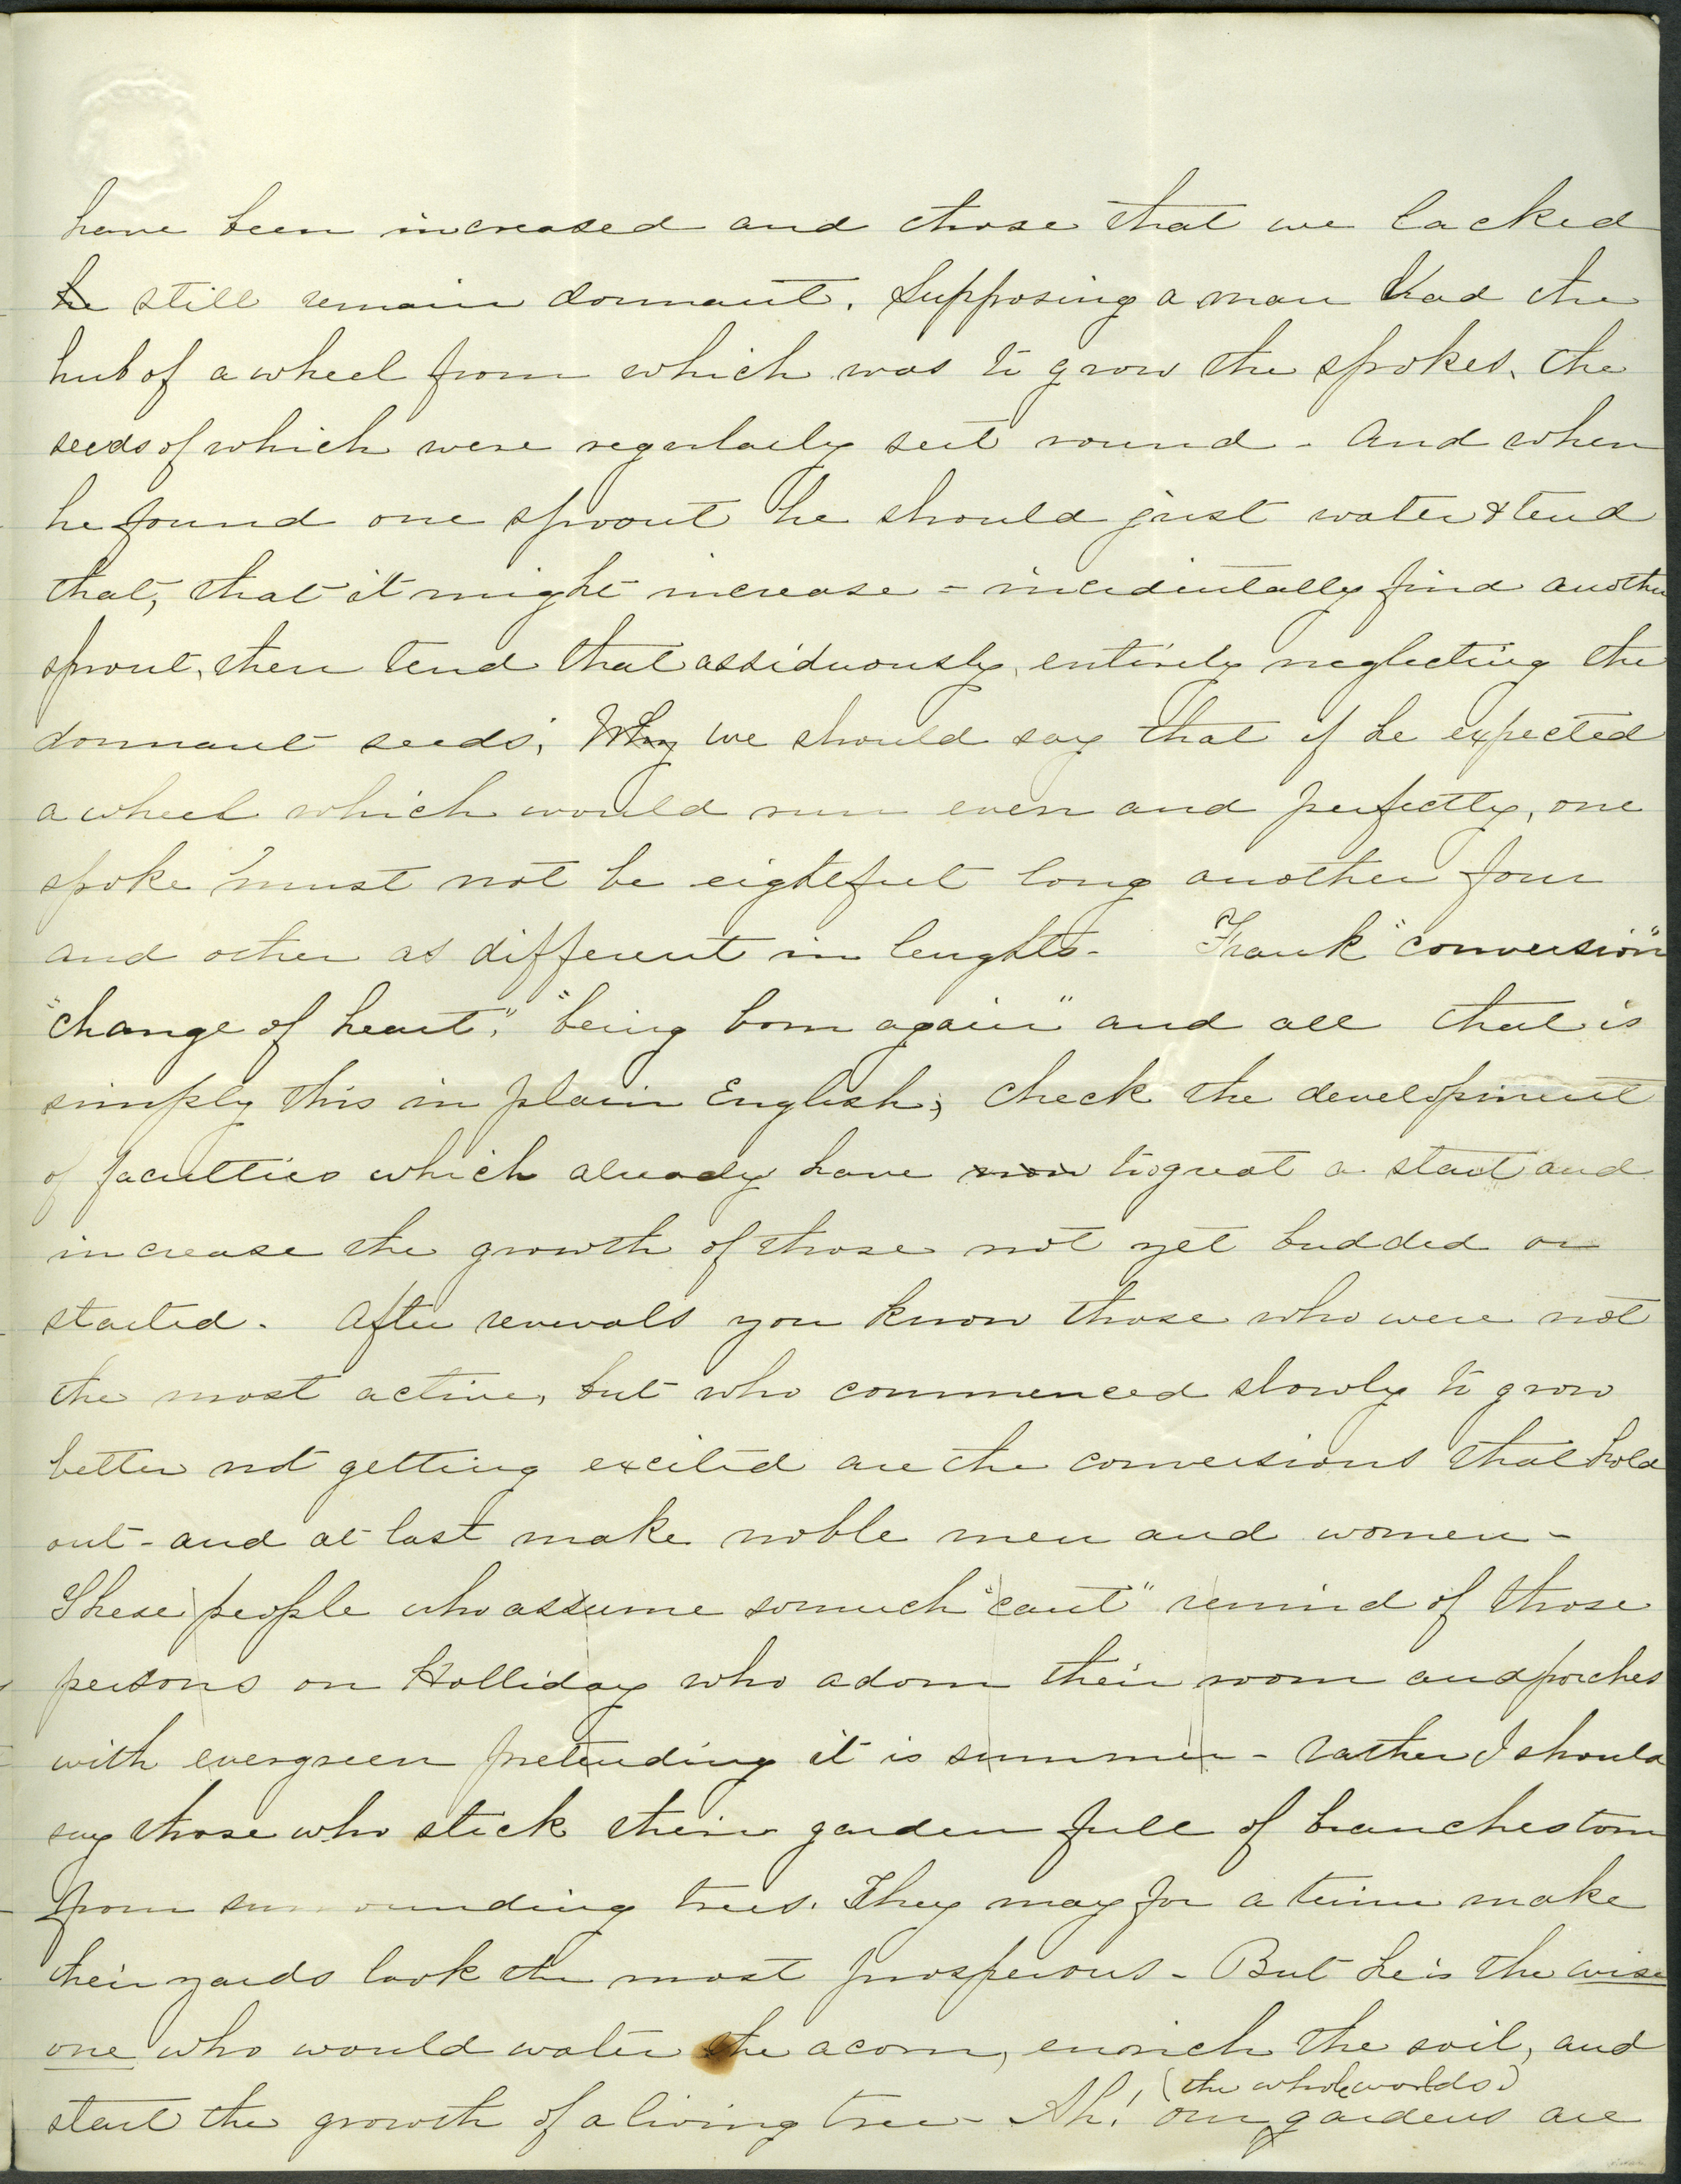 have been increased and those that we lacked
he still remain dormant. Supposing a man had the
hub of a wheel from which was to grow the spokes, the
seeds of which were regularly set round - And when
he found one sprout he should just water & tend
that, that it might increase - incidentally find another
sprout, then tend that assiduously, entirely neglecting the
dormant seeds; Why we should say that if he expected
a wheel which would run even and perfectly, one
spoke must not be eight feet long another four
and other as different in lenghts - Frank "conversion"
"change of heart," "being born again" and all that is
simply this in plain English; Check the development
of faculties which already have now too great a start and
increase the growth of those not yet budded or
started. After revivals you know those who were not
the most active, but who commenced slowly to grow
better not getting excited are the conversions that hold
out - and at last make noble men and women -
These people who assume so much "cant" remind of those
persons on Holliday who adorn their room and porches
with evergreen pretending it is summer - rather I should
say those who stick their garden full of branches torn
from surrounding trees. They may for a time make
their yards look the most prosperous - But he is the wise
one who would water the acorn, enrich the soil, and
(the whole worlds)
start the growth of a living tree - Ah! our gardens are